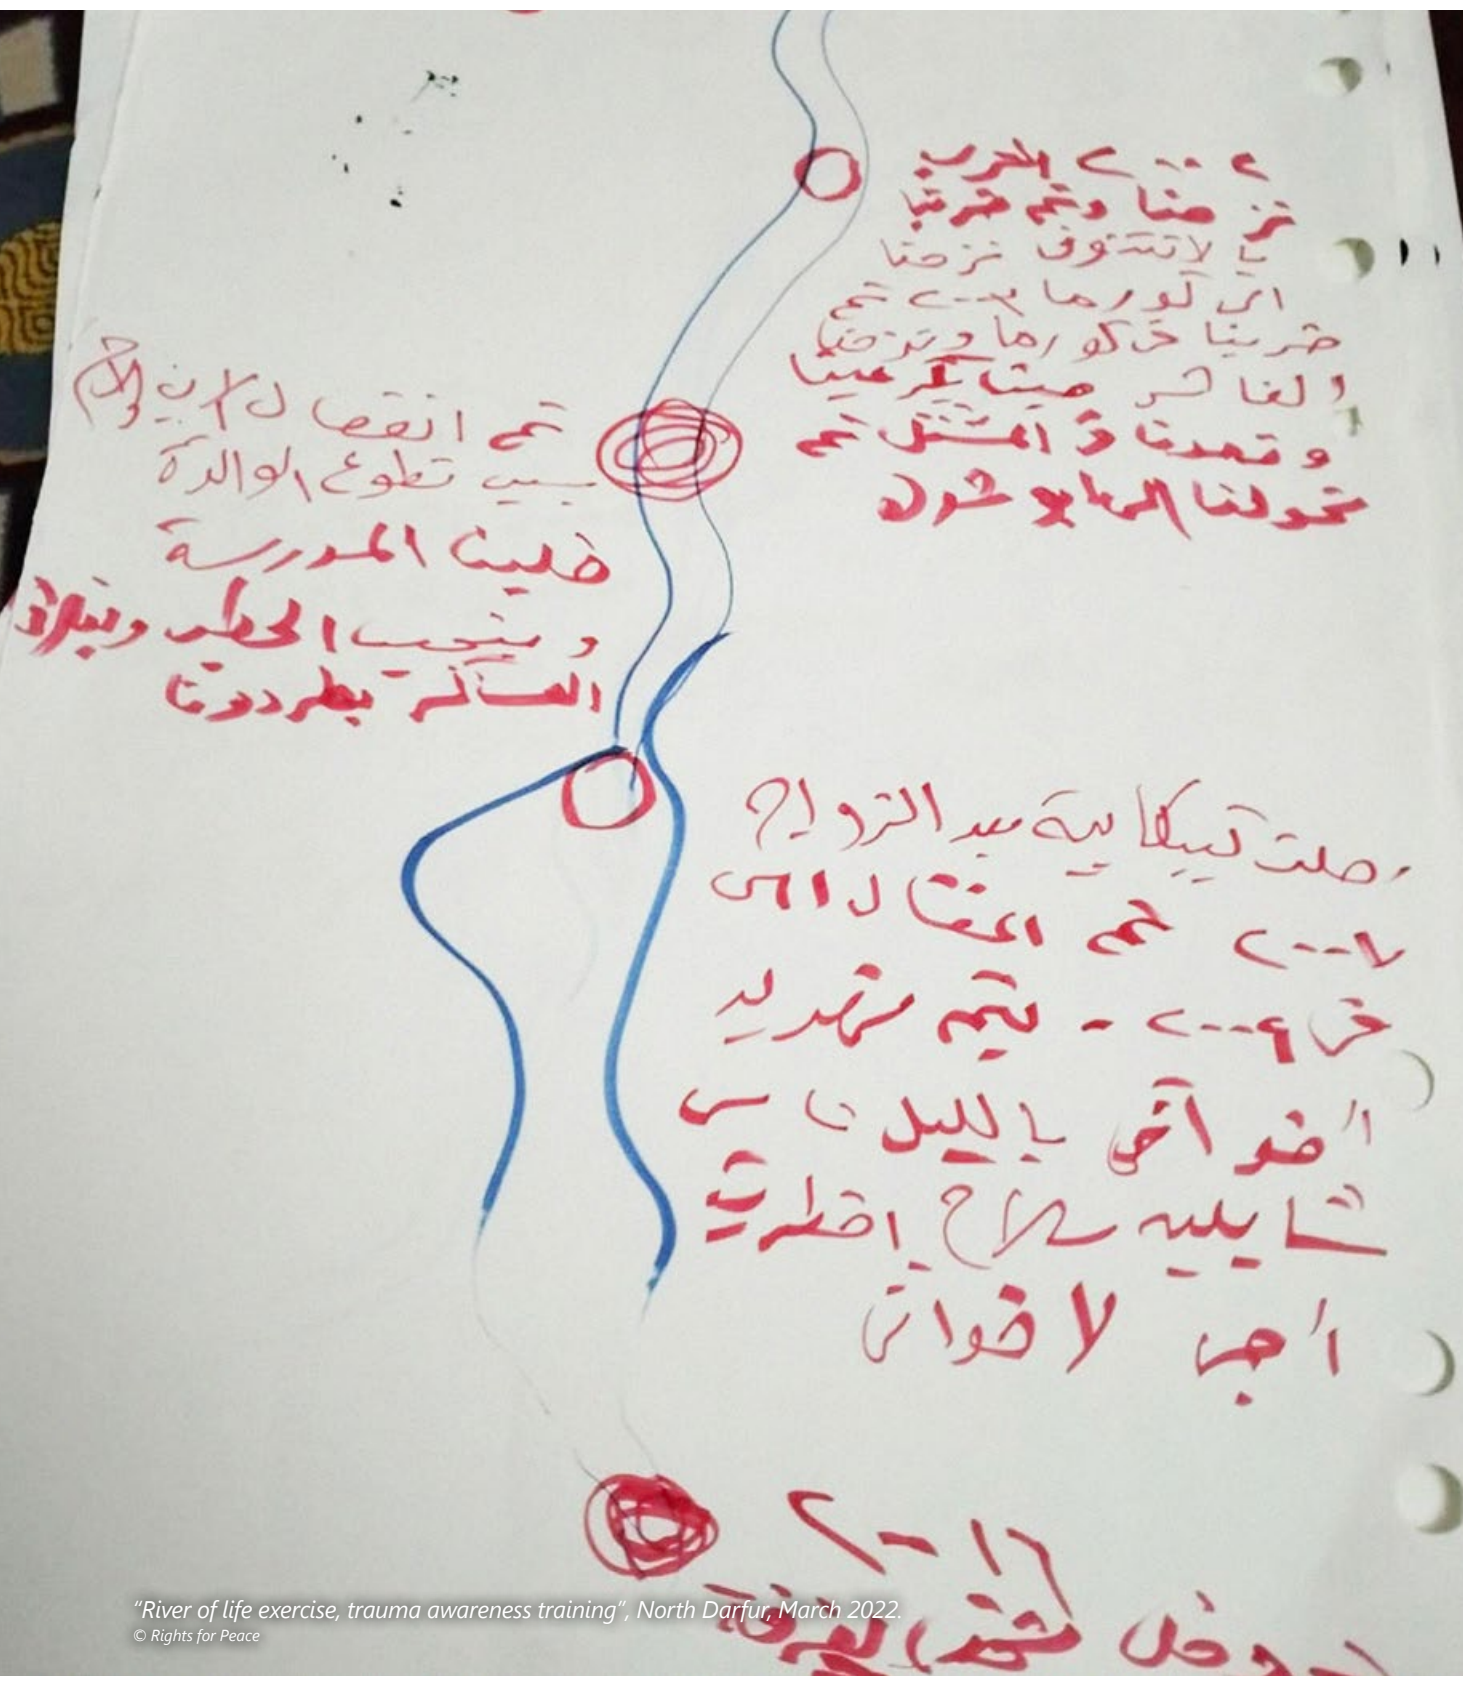 ٢٠٠٢ الحرب
نزحنا وتم ضربنا
با لانتنوف نزحنا
الى كورما ٢٠٠٣ تم
ضربنا في كورما ونزحنا
الفاشر
وقعدنا في المشتل تم
تحولنا الى ابو شوك
تم انفصال الاب والام
بسبب تطوع الوالدة
خلينا المدرسة
وبنجيب الحطب
العساكر بطردونا
رحلت كبكابية بعد الزواج
٢٠٠٧ تم اعتقال
في ٢٠٠٤ - يتم تهديد
بالليل ناس
شايلين سلاح اضطريت
أجي لاخواتي
٢٠١٦
دخل الغرفة
"River of life exercise, trauma awareness training", North Darfur, March 2022.
© Rights for Peace